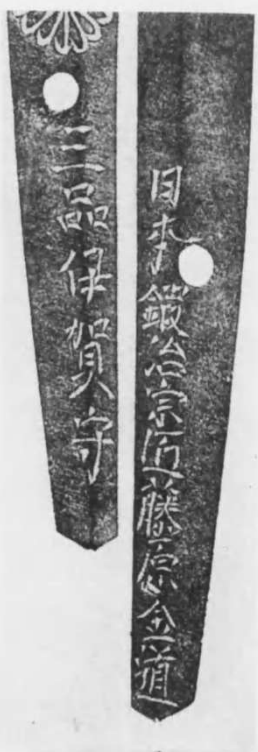 日本鍛冶宗匠藤原金道
三品伊賀守